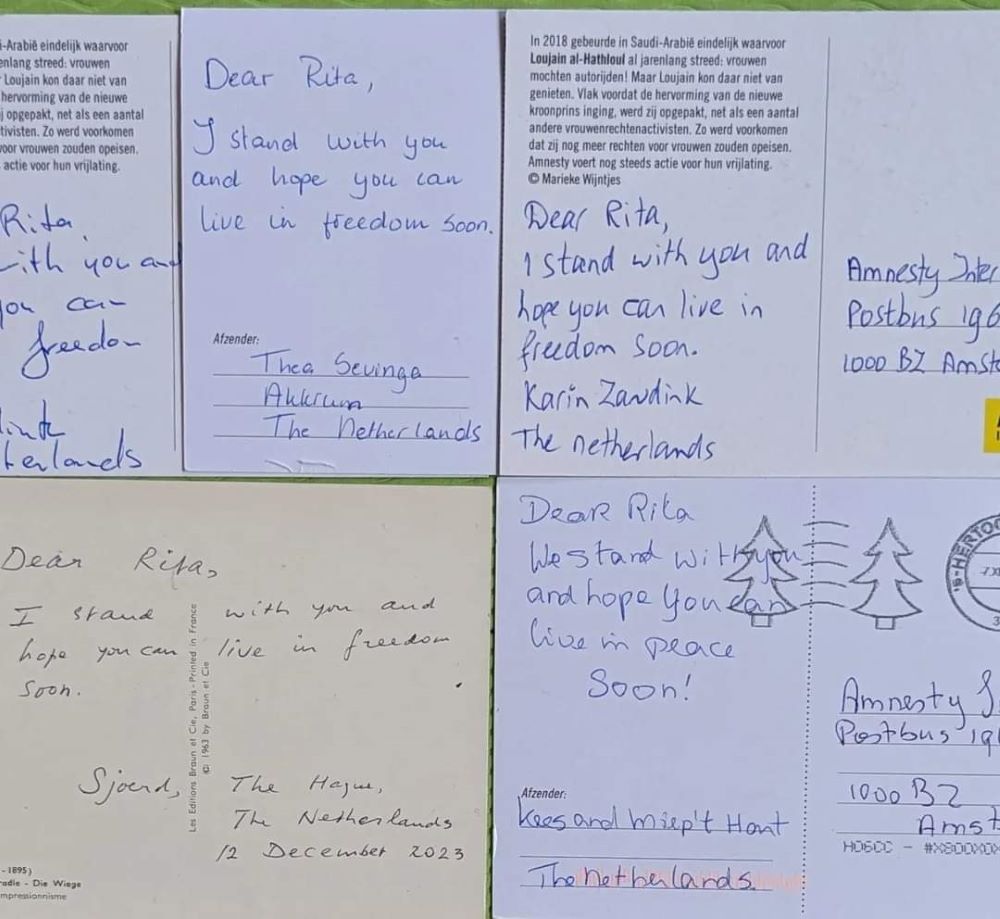 i-Arabië eindelijk waarvoor
enlang streed: vrouwen
Loujain kon daar niet van
hervorming van de nieuwe
j opgepakt, net als een aantal
tivisten. Zo werd voorkomen
voor vrouwen zouden opeisen.
actie voor hun vrijlating.
Rita,
with you and
you can
freedom
terlands
Dear Rita,
I stand with you
and hope you can
live in freedom soon.
Afzender:
Thea Sevinga
Akkrum
The Netherlands
In 2018 gebeurde in Saudi-Arabië eindelijk waarvoor
Loujain al-Hathloul al jarenlang streed: vrouwen
mochten autorijden! Maar Loujain kon daar niet van
genieten. Vlak voordat de hervorming van de nieuwe
kroonprins inging, werd zij opgepakt, net als een aantal
andere vrouwenrechtenactivisten. Zo werd voorkomen
dat zij nog meer rechten voor vrouwen zouden opeisen.
Amnesty voert nog steeds actie voor hun vrijlating.
© Marieke Wijntjes
Dear Rita,
I stand with you and
hope you can live in
freedom soon.
Karin Zandink
The netherlands
Amnesty Inter
Postbus 196
1000 BZ Amste
Dear Rita,
I stand with you and
hope you can live in freedom
soon.
Sjoerd, The Hague,
The Netherlands
12 December 2023
Les Editions Braun et Cie, Paris - Printed in France
© 1963 by Braun et Cie
-1895)
radie - Die Wiege
mpressionnisme
Dear Rita
We stand with you
and hope you can
live in peace
Soon!
Afzender:
Kees and Miep 't Hart
The netherlands
'S-HERTO
Amnesty
Postbus 196
1000 BZ
Amst